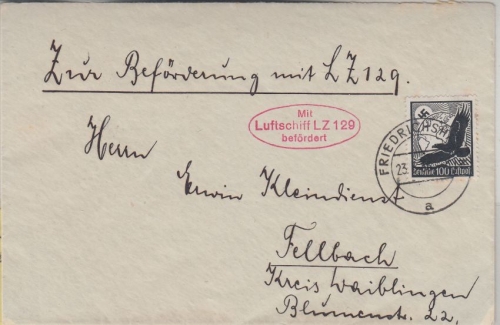 Zur Beförderung mit LZ 129.
Mit
Luftschiff LZ 129
befördert
Herrn
Erwin Kleindienst
Fellbach
Kreis Waiblingen
Blumenstr. 22.
FRIEDRICHSH
23.
a
Deutsche 100 Luftpost